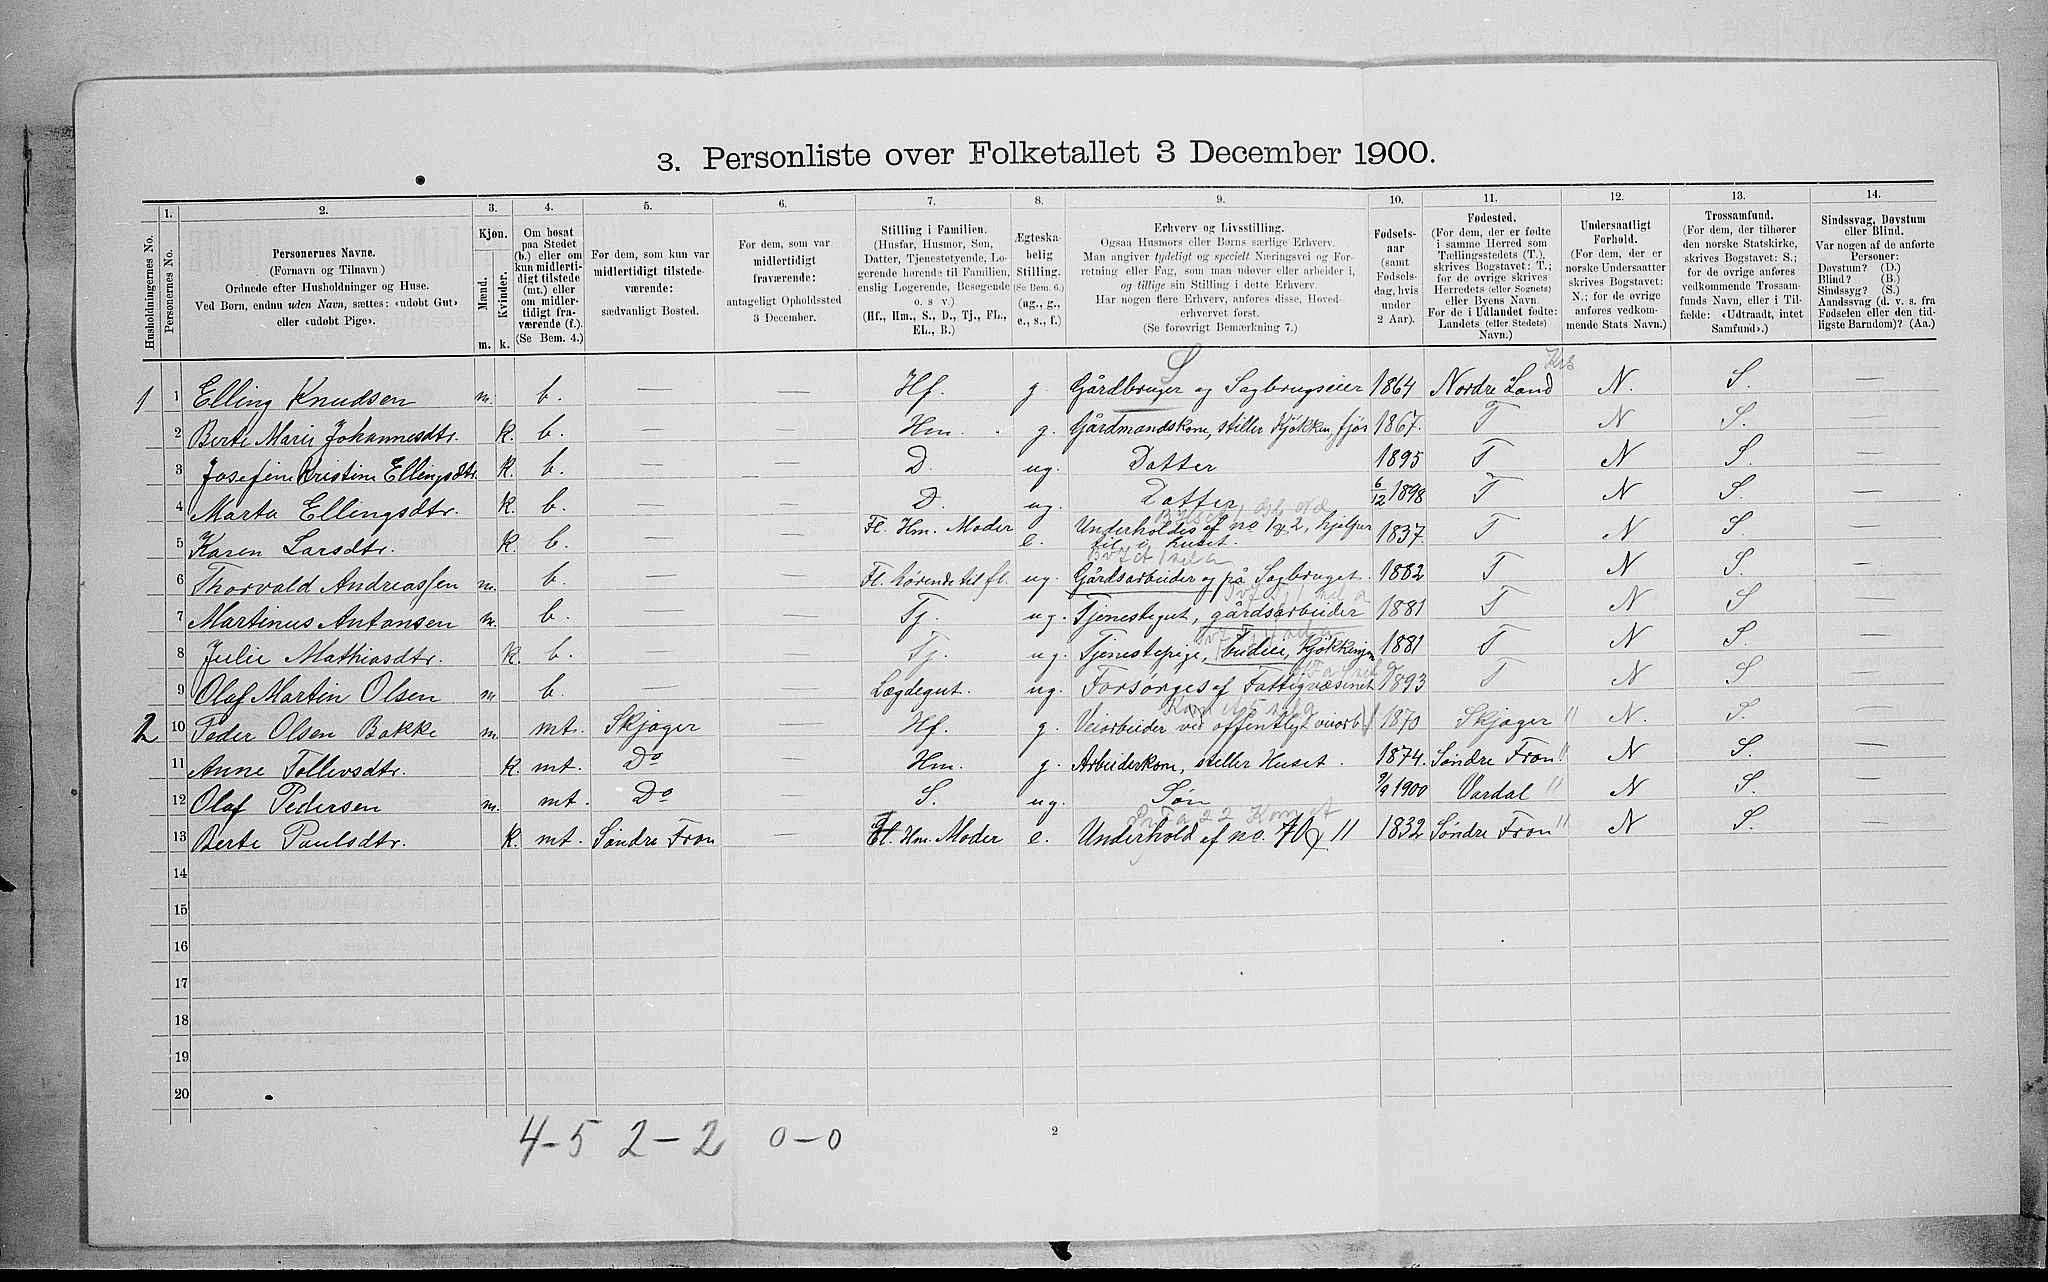 3. Personliste over Folketallet 3 December 1900.
1. 2. 3. 4. 5. 6. 7. 8. 9. 10. 11. 12. 13. 14.
Husholdningernes No.
Personernes No.
Personernes Navne.
(Fornavn og Tilnavn)
Ordnede efter Husholdninger og Huse.
Ved Børn, endnu uden Navn, sættes: «udøbt Gut»
eller «udøbt Pige».
Kjøn.
Mænd.
Kvinder.
m. k.
Om bosat
paa Stedet
(b.) eller om
kun midlerti-
digt tilstede
(mt.) eller
om midler-
tidigt fra-
værende (f.).
(Se Bem. 4.)
For dem, som kun var
midlertidigt tilstede-
værende:
sædvanligt Bosted.
For dem, som var
midlertidigt
fraværende:
antageligt Opholdssted
3 December.
Stilling i Familien.
(Husfar, Husmor, Søn,
Datter, Tjenestetyende, Lo-
gerende hørende til Familien,
enslig Logerende, Besøgende
o. s v.)
(Hf., Hm., S., D., Tj., FL.,
EL., B.)
Ægteska-
belig
Stilling.
(Se Bem. 6.)
(ug., g.,
e., s., f.)
Erhverv og Livsstilling.
Ogsaa Husmors eller Børns særlige Erhverv.
Man angiver tydeligt og specielt Næringsvei og For-
retning eller Fag, som man udøver eller arbeider i,
og tillige sin Stilling i dette Erhverv.
Har nogen flere Erhverv, anføres disse, Hoved-
erhvervet først.
(Se forøvrigt Bemærkning 7.)
Fødsels-
aar
(samt
Fødsels-
dag, hvis
under
2 Aar).
Fødested.
(For dem, der er fødte
i samme Herred som
Tællingsstedets (T.),
skrives Bogstavet: T.;
for de øvrige skrives
Herredets (eller Sognets)
eller Byens Navn.
For de i Udlandet fødte:
Landets (eller Stedets)
Navn.)
Undersaatligt
Forhold.
(For dem, der er
norske Undersaatter
skrives Bogstavet:
N.; for de øvrige
anføres vedkom-
mende Stats Navn.)
Trossamfund.
(For dem, der tilhører
den norske Statskirke,
skrives Bogstavet: S.;
for de øvrige anføres
vedkommende Trossam-
funds Navn, eller i Til-
fælde: «Udtraadt, intet
Samfund».)
Sindssvag, Døvstum
eller Blind.
Var nogen af de anførte
Personer:
Døvstum? (D.)
Blind? (B.)
Sindssyg? (S.)
Aandssvag (d. v. s. fra
Fødselen eller den tid-
ligste Barndom)? (Aa.)
S Krs
1 1 Elling Knudsen m. b. — — Hf. g Gårdbruger og Sagbrugseier 1864 Nordre Land N. S. —
2 Berte Marie Johannesdtr. k. b. — — Hm. g. Gårdmandskone, stiller Kjøkken, fjøs 1867. T N S. —
3 Josefine Kristine Ellingsdtr. k. b. — — D. ug. Datter 1895 T N S. —
4 Marta Ellingsdtr. k. b. — — D. ug. Datter 6/12 1898 T N S. —
5 Karen Larsdtr. k b. — — Fl. Hm. Moder e. Underholdes af no 1 & 2, hjelper til i huset. 1837 T N S. —
6 Thorvald Andreassen m. b. — — Fl. hørende til fl. ug. Gårdsarbeider og på Sagbruget. 1882 T N S. —
7 Martinus Antonsen m. b. — — Tj. ug. Tjenestegut, gårdsarbeider 1881 T N S —
8 Julie Mathiasdtr. k. b. — — Tj. ug. Tjenestepige, budeie, 1881 T N S. —
9 Olaf Martin Olsen m b. — — Lægdegut. ug. Forsørges af Fattigvæsenet 1893 T N S —
2 10 Peder Olsen Bakke m. mt. Skjager — Hf. g. Veiarbeider ved offentligt veiarb. 1870 Skjager " N. S. —
11 Anne Tollevsdtr. k. mt. Do — Hm. g. Arbeiderkone, steller Huset. 1874. Søndre Fron " N S. —
12 Olaf Pedersen m. mt. Do — S. ug. Søn 9/9 1900 Vardal " N S. —
13 Berte Paulsdtr. k. mt. Søndre Fron — Fl. Hm. Moder e. Underhold af no. 10 & 11 1832 Søndre Fron " N S. —
14
15
16
17
18
19
20
4-5 2-2 0-0
2